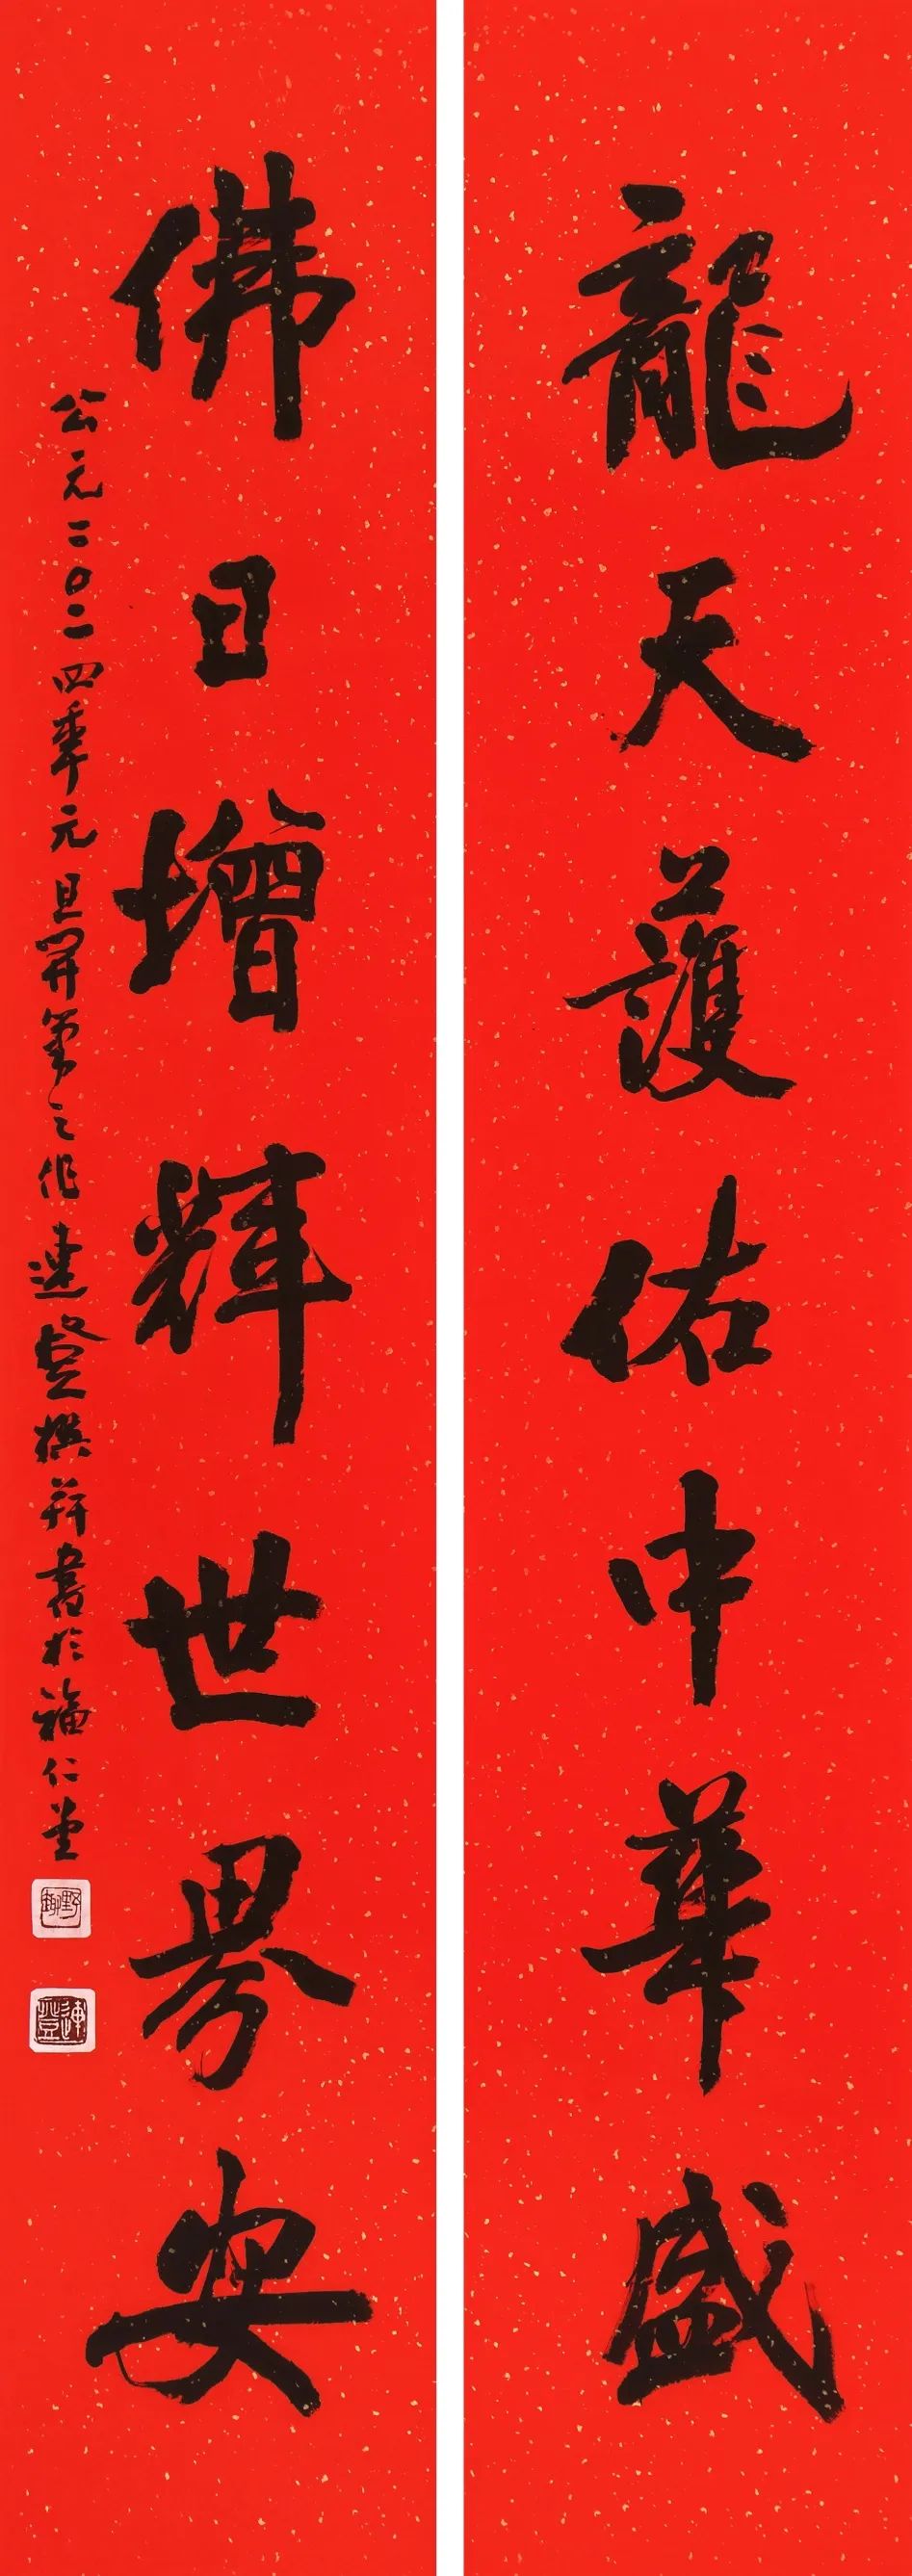 龍天護佑中華盛
佛日增輝世界安
公元二〇二四年元旦開筆之作連登撰并書於福仁堂
連登